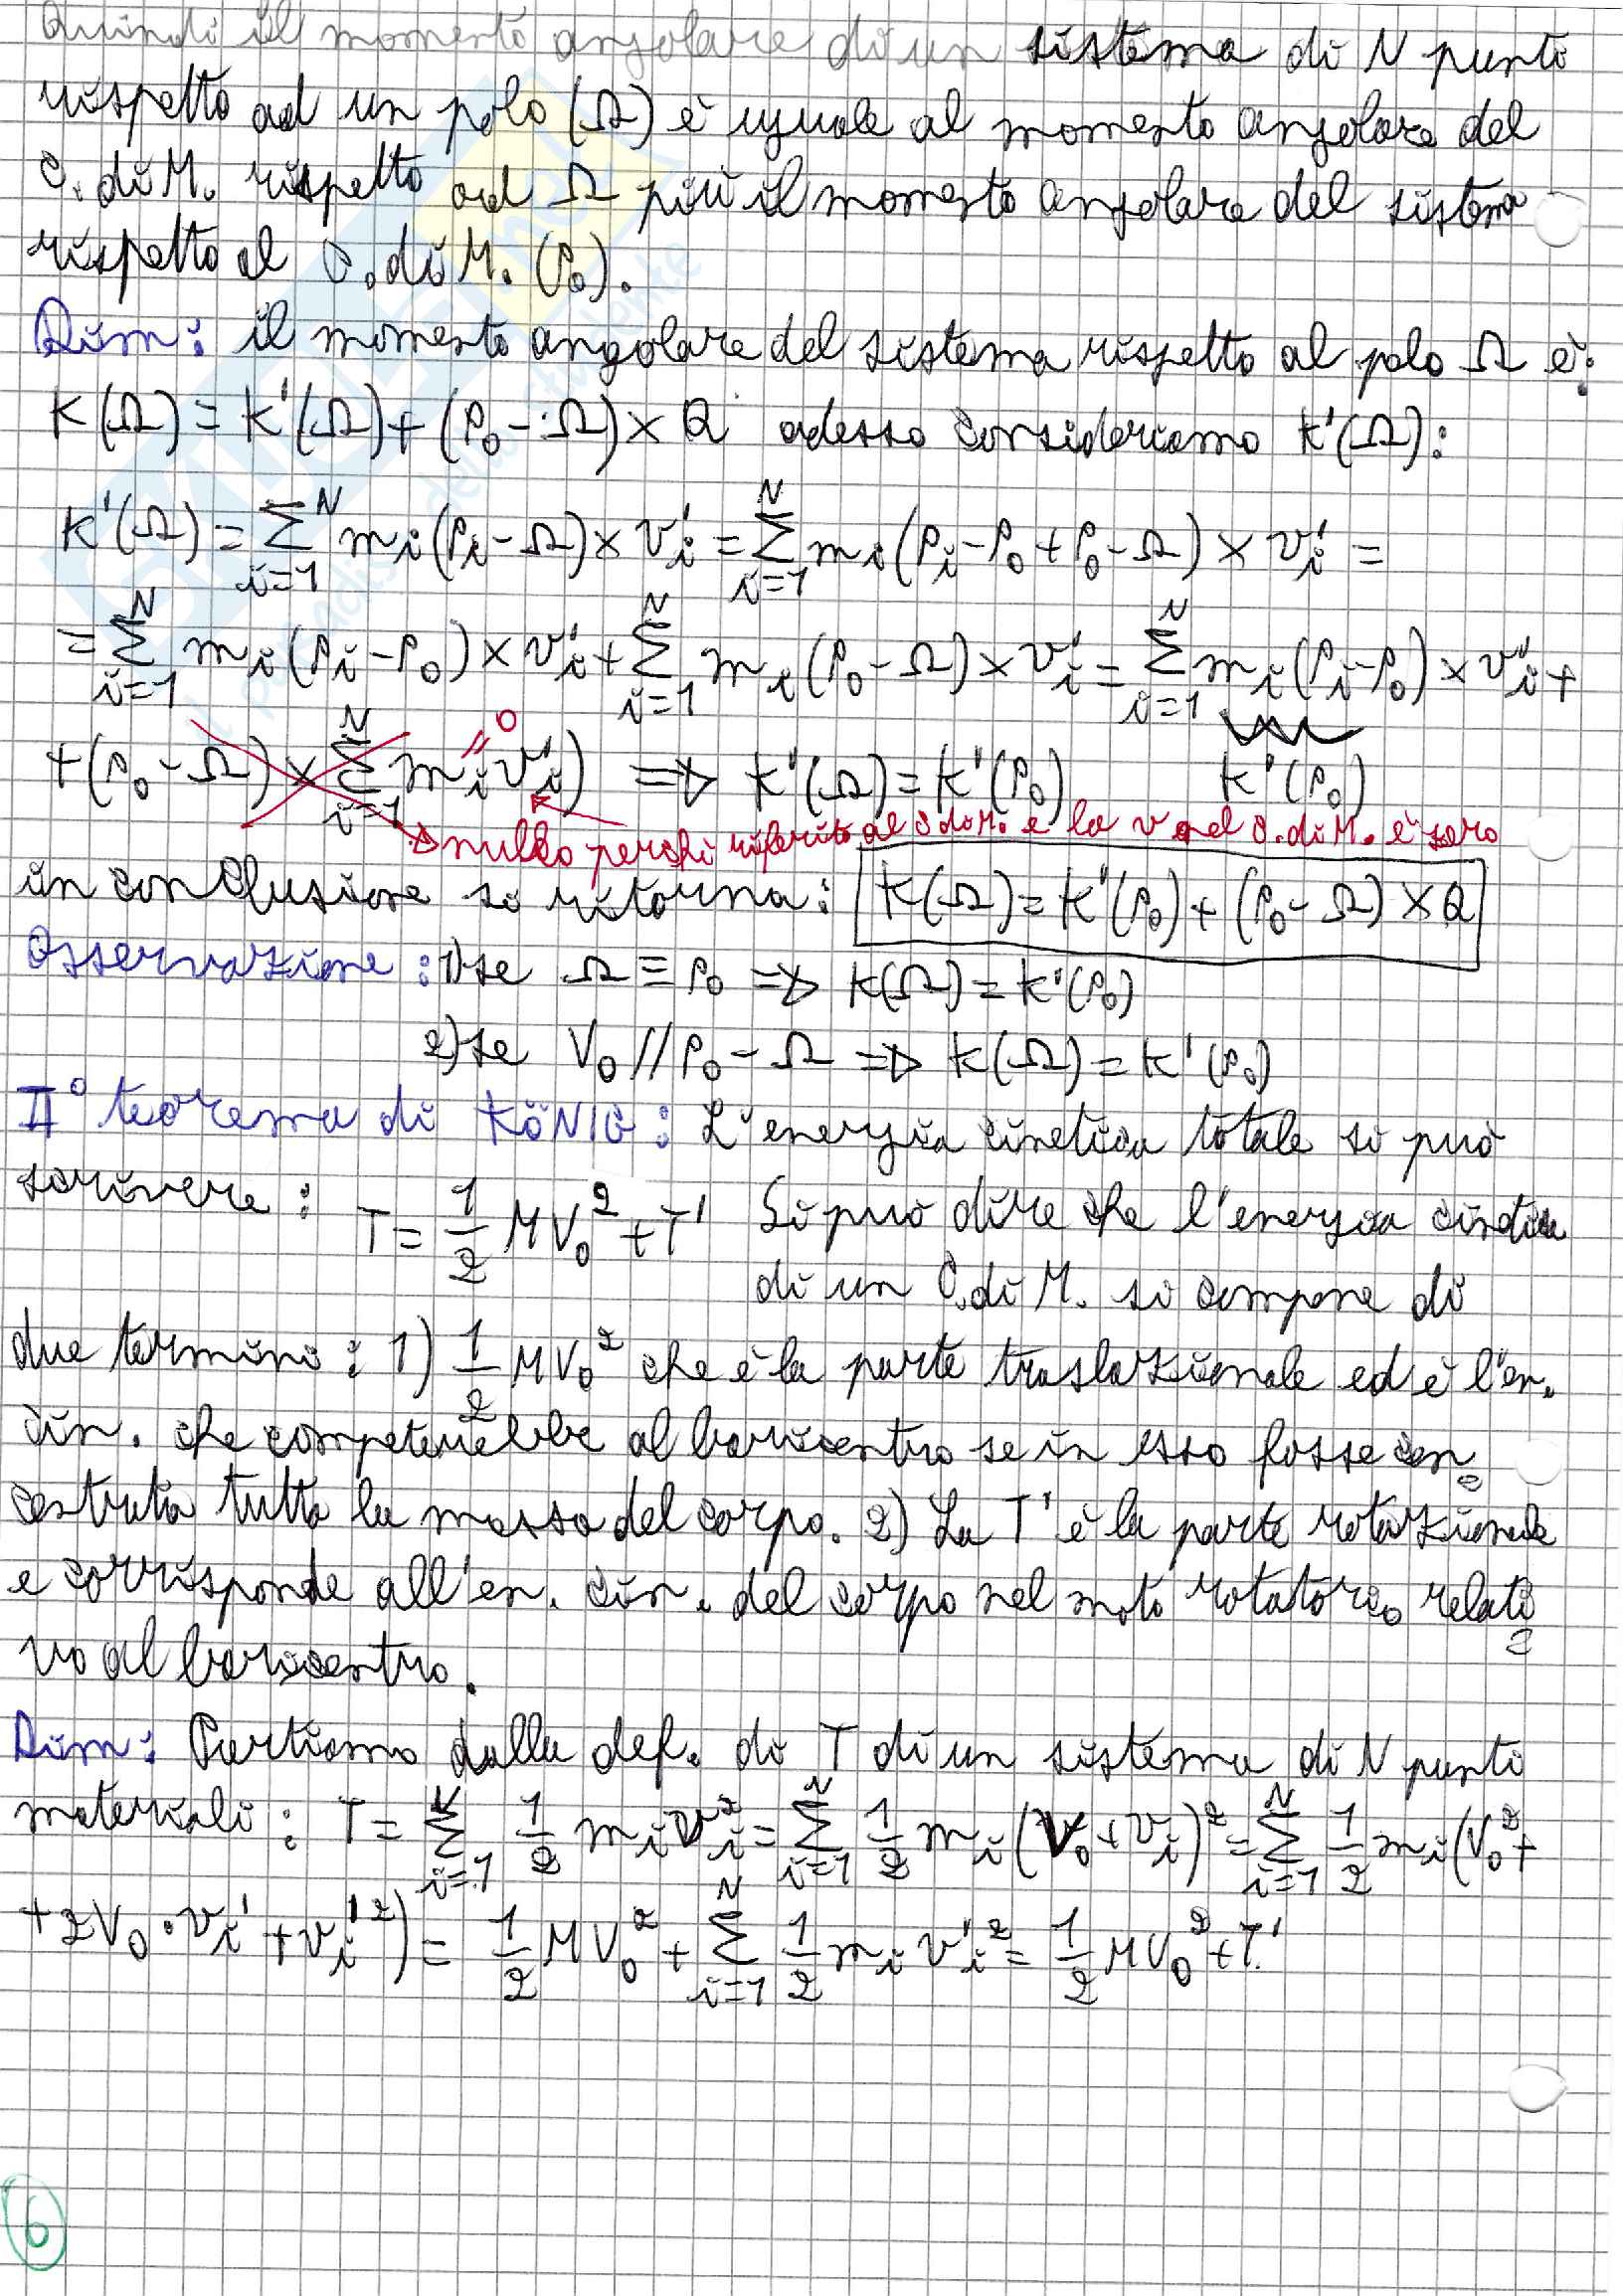 Quindi il momento angolare di un sistema di N punti
rispetto ad un polo (Ω) è uguale al momento angolare del
C. di M. rispetto ad Ω più il momento angolare del sistema
rispetto al C. di M. (P₀).
Dim: il momento angolare del sistema rispetto al polo Ω è:
K(Ω) = K'(Ω) + (P₀ - Ω) × Q adesso consideriamo K'(Ω):
K'(Ω) = Σ_{i=1}^{N} mᵢ(Pᵢ - Ω) × vᵢ' = Σ_{i=1}^{N} mᵢ(Pᵢ - P₀ + P₀ - Ω) × vᵢ' =
= Σ_{i=1}^{N} mᵢ(Pᵢ - P₀) × vᵢ' + Σ_{i=1}^{N} mᵢ(P₀ - Ω) × vᵢ' = Σ_{i=1}^{N} mᵢ(Pᵢ - P₀) × vᵢ' +
+ (P₀ - Ω) × Σ_{i=1}^{N} mᵢvᵢ') = 0 => K'(Ω) = K'(P₀) K'(P₀)
nullo perchè riferito al C. di M. e la v nel C. di M. è zero
in conclusione si ritorna: K(Ω) = K'(P₀) + (P₀ - Ω) × Q
Osservazione: 1) se Ω ≡ P₀ => K(Ω) = K'(P₀)
2) se V₀ // P₀ - Ω => K(Ω) = K'(P₀)
II° teorema di KÖNIG: L'energia cinetica totale si può
scrivere: T = 1/2 MV₀² + T' Si può dire che l'energia cinetica
di un C. di M. si compone di
due termini: 1) 1/2 MV₀² che è la parte traslazionale ed è l'en.
cin. che competerebbe al baricentro se in esso fosse con=
centrata tutta la massa del corpo. 2) La T' è la parte rotazionale
e corrisponde all'en. cin. del corpo nel moto rotatorio relati=
vo al baricentro.
Dim: Partiamo dalla def. di T di un sistema di N punti
materiali: T = Σ_{i=1}^{N} 1/2 mᵢvᵢ² = Σ_{i=1}^{N} 1/2 mᵢ(V₀ + vᵢ')² = Σ_{i=1}^{N} 1/2 mᵢ(V₀² +
+ 2V₀ · vᵢ' + vᵢ'²) = 1/2 MV₀² + Σ_{i=1}^{N} 1/2 mᵢvᵢ'² = 1/2 MV₀² + T'
6